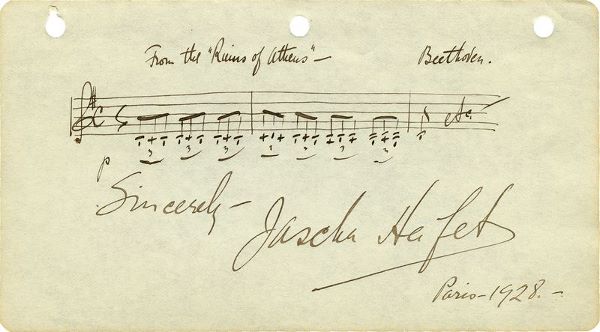 From the "Ruins of Athens"—
Beethoven.
3 3 3 3 3 3 3
etc
p
Sincerely—
Jascha Heifetz
Paris—1928.—